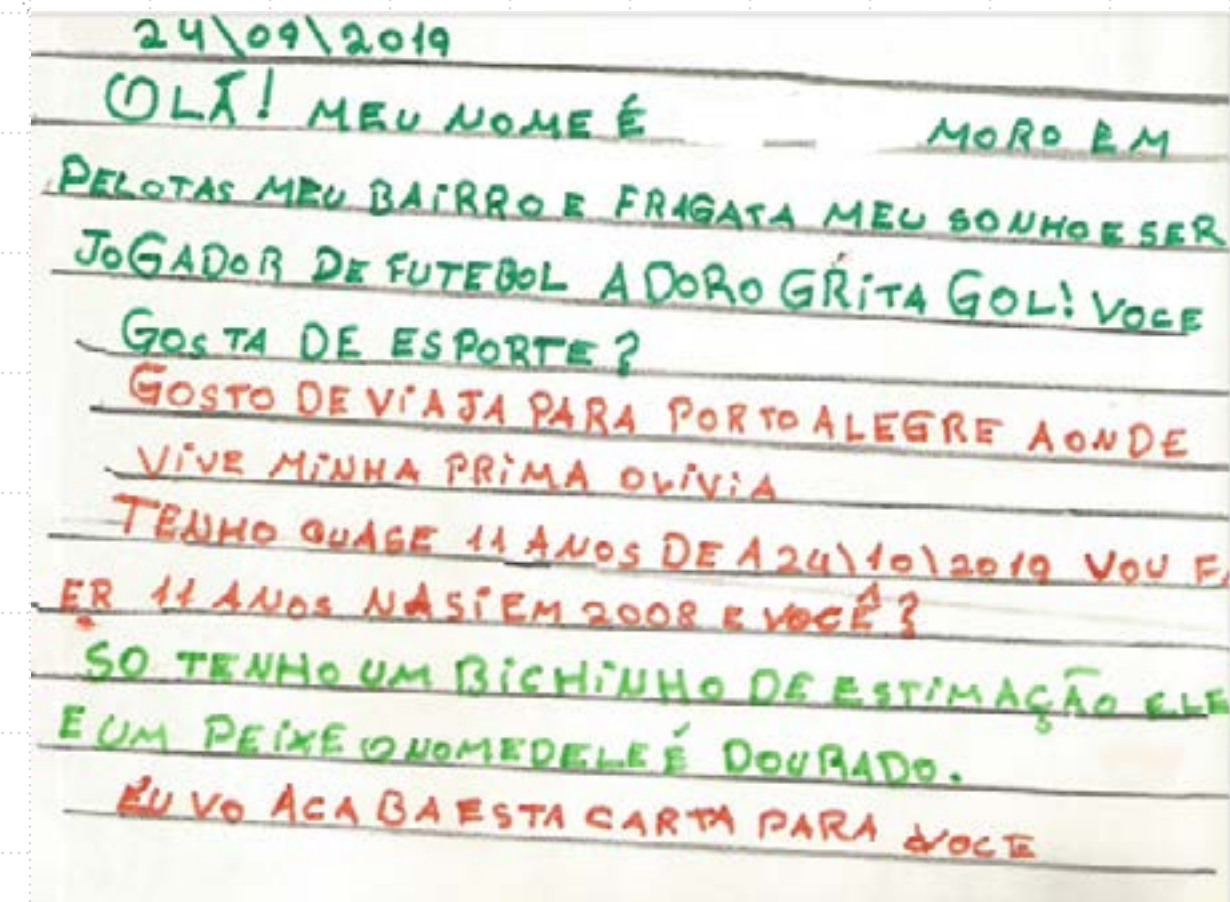 24\09\2019
OLÃ! MEU NOME É MORO EM
PELOTAS MEU BAIRRO E FRAGATA MEU SONHO E SER
JOGADOR DE FUTEBOL ADORO GRITA GOL! VOCE
GOSTA DE ESPORTE?
GOSTO DE VIAJA PARA PORTO ALEGRE AONDE
VIVE MINHA PRIMA OLIVIA
TENHO QUASE 11 ANOS DE A 24\10\2019 VOU FA
ER 11 ANOS NASI EM 2008 E VOCÊ?
SO TENHO UM BICHINHO DE ESTIMAÇÃO ELE
E UM PEIXE O NOME DELE É DOURADO.
EU VO ACABA ESTA CARTA PARA VOCE